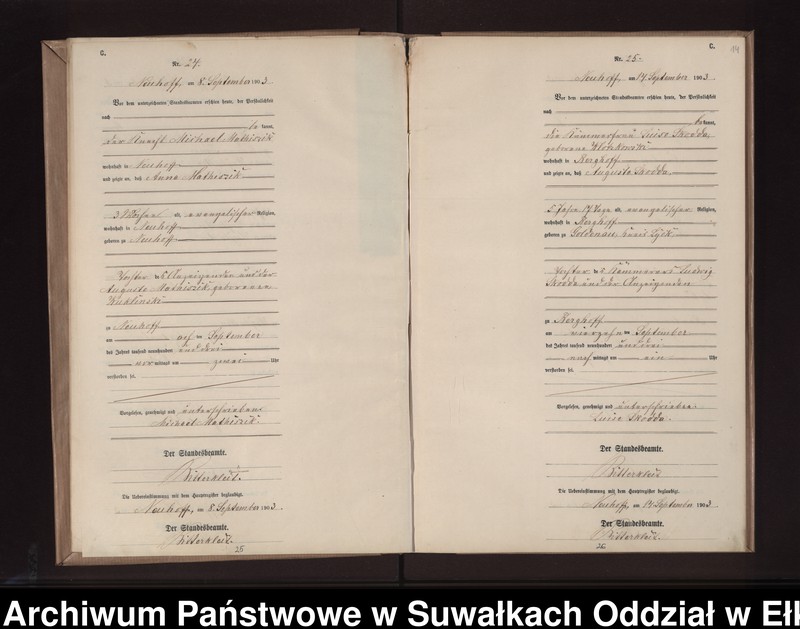 C.
Nr. 24.
Neuhoff, am 8. September 1903.
Vor dem unterzeichneten Standesbeamten erschien heute, der Persönlichkeit
nach
be kannt,
der Michael Mathiszik
wohnhaft in Neuhoff
und zeigte an, daß Anna Mathiszik
3 Wochen alt, evangelischer Religion,
wohnhaft in Neuhoff
geboren zu Neuhoff
Tochter des Anzeigenden und der
Auguste Mathiszik geborenen
Kuklinski
zu Neuhoff
am acht ten September
des Jahres tausend neunhundert und drei
vor mittags um zwei Uhr
verstorben sei.
Vorgelesen, genehmigt und unterschrieben
Michael Mathiszik.
Der Standesbeamte.
Die Uebereinstimmung mit dem Hauptregister beglaubigt.
Neuhoff, am 8. September 1903.
Der Standesbeamte.
25
C.
114
Nr. 25.
Neuhoff, am 14. September 1903.
Vor dem unterzeichneten Standesbeamten erschien heute, der Persönlichkeit
nach
be kannt,
die Kämmerfrau Luise Skodda,
geborene
wohnhaft in Berghoff
und zeigte an, daß Auguste Skodda,
5 Jahre 14 Tage alt, evangelischer Religion,
wohnhaft in Berghoff
geboren zu Goldenau, Kreis Lyck
Tochter des Kämmerers Ludwig
Skodda und der Anzeigenden
zu Berghoff
am vierzehn ten September
des Jahres tausend neunhundert und drei
nach mittags um ein Uhr
verstorben sei.
Vorgelesen, genehmigt und unterschrieben
Luise Skodda.
Der Standesbeamte.
Die Uebereinstimmung mit dem Hauptregister beglaubigt.
Neuhoff, am 14. September 1903.
Der Standesbeamte.
26
Archiwum Państwowe w Suwałkach Oddział w Ełk